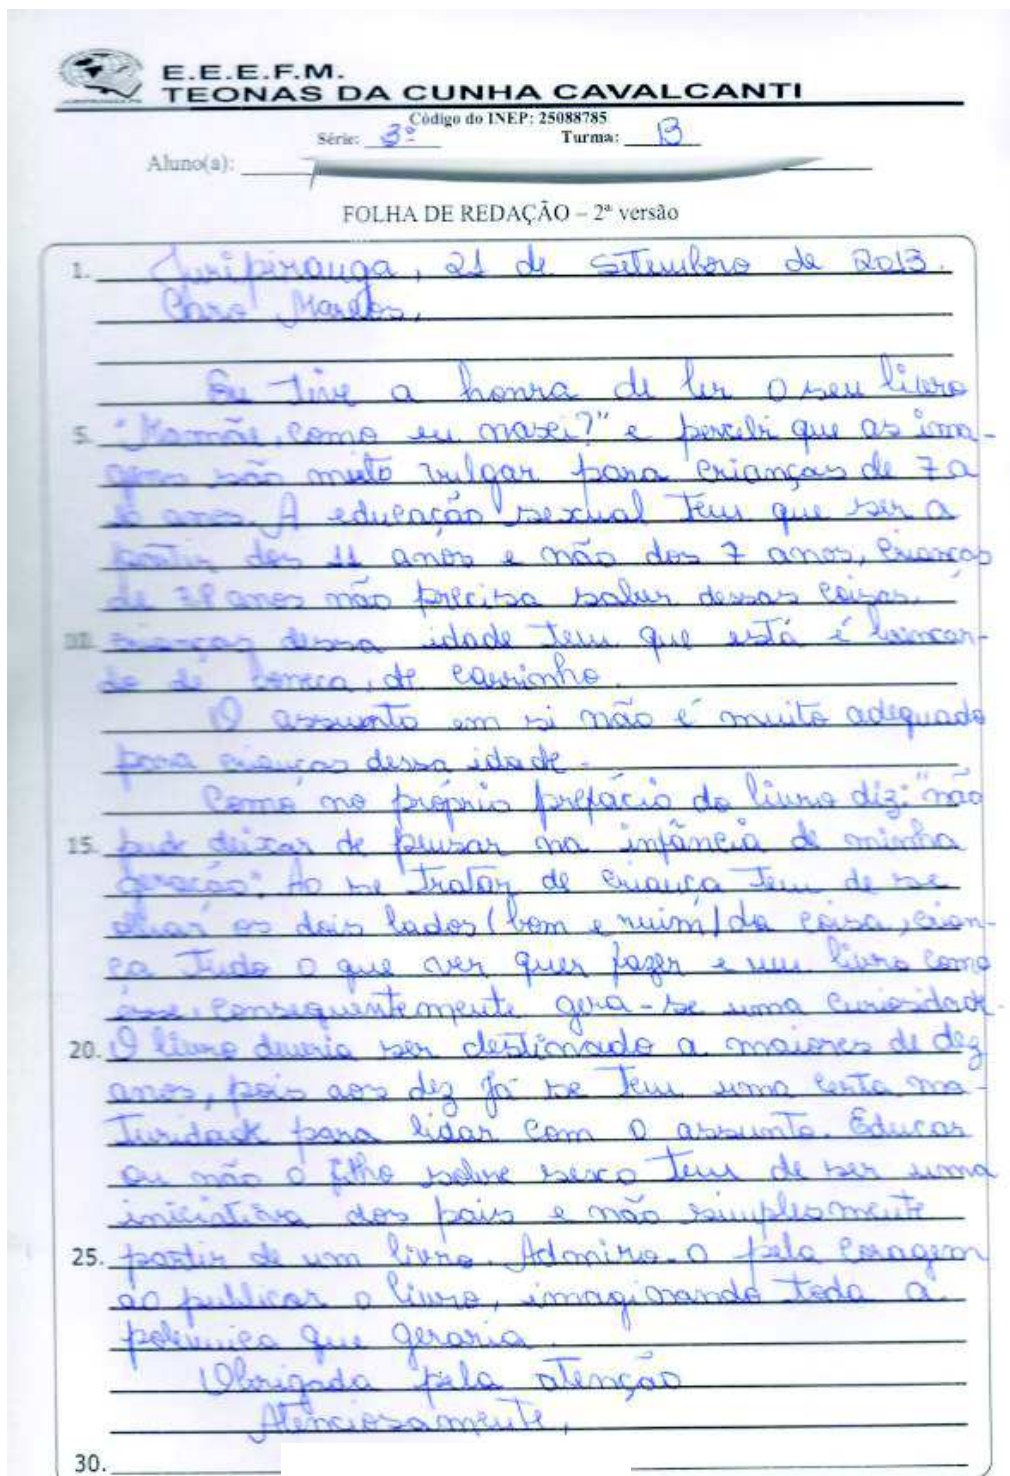 E.E.E.F.M.
TEONAS DA CUNHA CAVALCANTI
Código do INEP: 25088785
Série: 3º Turma: B
Aluno(a):
FOLHA DE REDAÇÃO – 2ª versão
1. Juripiranga, 21 de setembro de 2013.
Caro Marcos,
Eu tive a honra de ler o seu livro
5. "Mamãe, como eu nasci?" e percebi que as ima-
gens são muito vulgar para crianças de 7 a
10 anos. A educação sexual tem que ser a
partir dos 11 anos e não dos 7 anos, crianças
de anos não precisa saber dessas coizas.
10. crianças dessa idade tem que está é brincan-
do de boneca, de carrinho.
O assunto em si não é muito adequado
para crianças dessa idade.
Como no próprio prefácio do livro diz: "não
15. pude deixar de pensar na infância de minha
geração". Ao se tratar de criança tem de se
olhar os dois lados (bom e ruim) da coisa, crian-
ça tudo o que ver quer fazer e um livro como
esse consequentemente gera-se uma curiosidade.
20. O livro deveria ser destinado a maiores de dez
anos, pois aos dez já se tem uma certa ma-
turidade para lidar com o assunto. Educar
ou não o filho sobre sexo tem de ser uma
iniciativa dos pais e não simplesmente
25. partir de um livro. Admiro-o pela coragem
ao publicar o livro, imaginando toda a
polemica que geraria.
Obrigada pela atenção
Atenciosamente,
30.